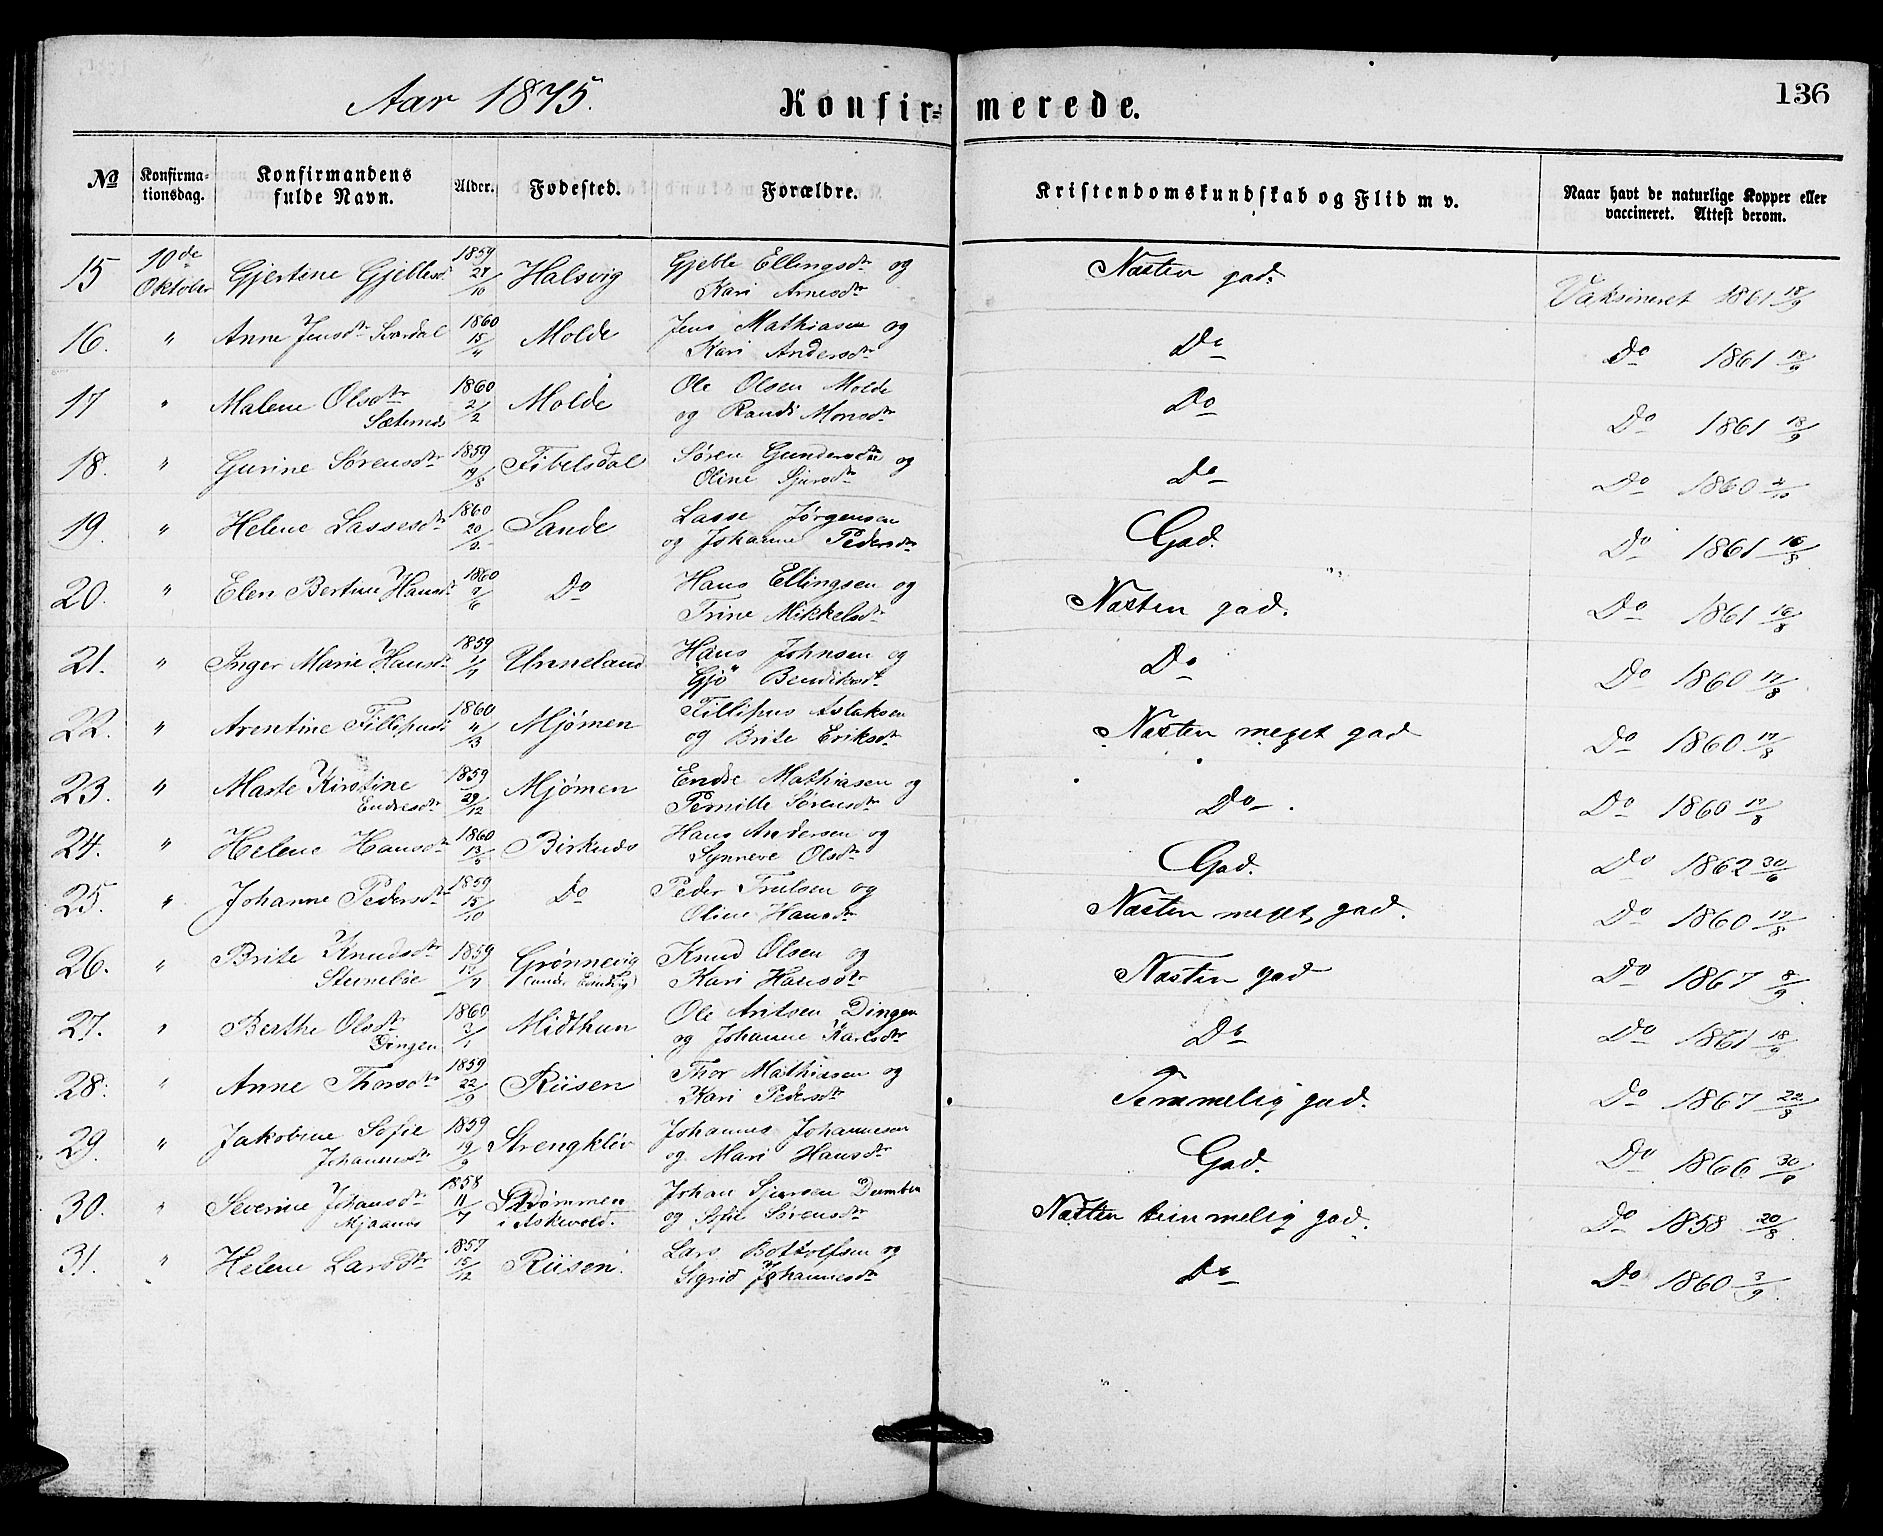 Aar 1875.
Konfir= merede.
136
No
Konfirma-
tionsdag.
Konfirmandens
fulde Navn.
Alder.
Fødested.
Forældre.
Kristendomskundskab og Flid m v.
Naar havt de naturlige Kopper eller
vaccineret. Attest derom.
15 10de Oktober Gjertine Gjebles 1859 10 Halsvig Gjeble Ellings og
Kari Arnesdtr Næsten god. Vaksineret 1861 18/9
16. " Anne Jensdtr 1860 15/4 Molde Jens Mathiasen og
Kari Andersdtr Do Do 1861 18/9
17 " Malene Olsdtr 1860 2/2 Molde Ole Olsen Molde
og Randi Monsdtr Do Do 1861 18/9
18. " Gurine Sørensdtr 1859 Tibelsdal Søren og
Oline Sjursdtr Do Do 1860
19. " Helene Lassesdtr 1860 20/2 Sande Lasse Jørgensen
og Johanne Pedersdtr God. Do 1861 16/8
20. " Elen Bertine Hansdtr 1860 Do Hans Ellingsen og
Trine Mikkelsdtr Næsten god. Do 1861 16/8
21. " Inger Marie Hansdtr 1859 Unneland Hans Johnsen og
Gjø Bendiksdtr Do Do 1860 17/8
22. " Arentine 1860 Mjømen Fillipus Aslaksen
og Brite Eriksdtr Næsten meget god Do 1860 17/8
23. " Marte Kirstine
Endresdtr 1859 29/12 Mjømen Endre Mathiasen og
Pernille Sørensdtr Do Do 1860 17/8
24. " Helene Hansdtr 1860 Birknes Hans Andersen og
Synneve Olsdtr God. Do 1862 30/6
25. " Johanne Pedersdtr 1859 15/10 Do Peder Trulsen og
Oline Hansdtr Næsten meget god. Do 1860 17/8
26. " Brite Knudsdtr
Steinebøe 1859 Grønnevig Knud Olsen og
Kari Hansdtr Næsten god Do 1867 8/9
27. " Berthe Olsdtr
Dingen 1860 2/1 Midthun Ole Antsen Dingen
og Johanne Karlsdtr Do Do 1861 18/9
28. " Anne Thorsdtr 1859 22/9 Riisen Thor Mathiasen og
Kari Pedersdtr Temmelig god. Do 1867 22/8
29. " Jakobine Sofie
Johannesdtr 1859 19/9 Strengkløv Johannes Johannesen
og Mari Hansdtr God. Do 1866
30. " Severine Johansdtr
Mjaanes 1858 11/7 Strømmen
i Askevold. Johan Sjursen
og Sofie Sørensdtr Næsten temmelig god. Do 1858 20/8
31. " Helene Larsdtr 1857 15/12 Riisen Lars Bottolfsen og
Sigrid Johannesdtr Do Do 1860 3/9